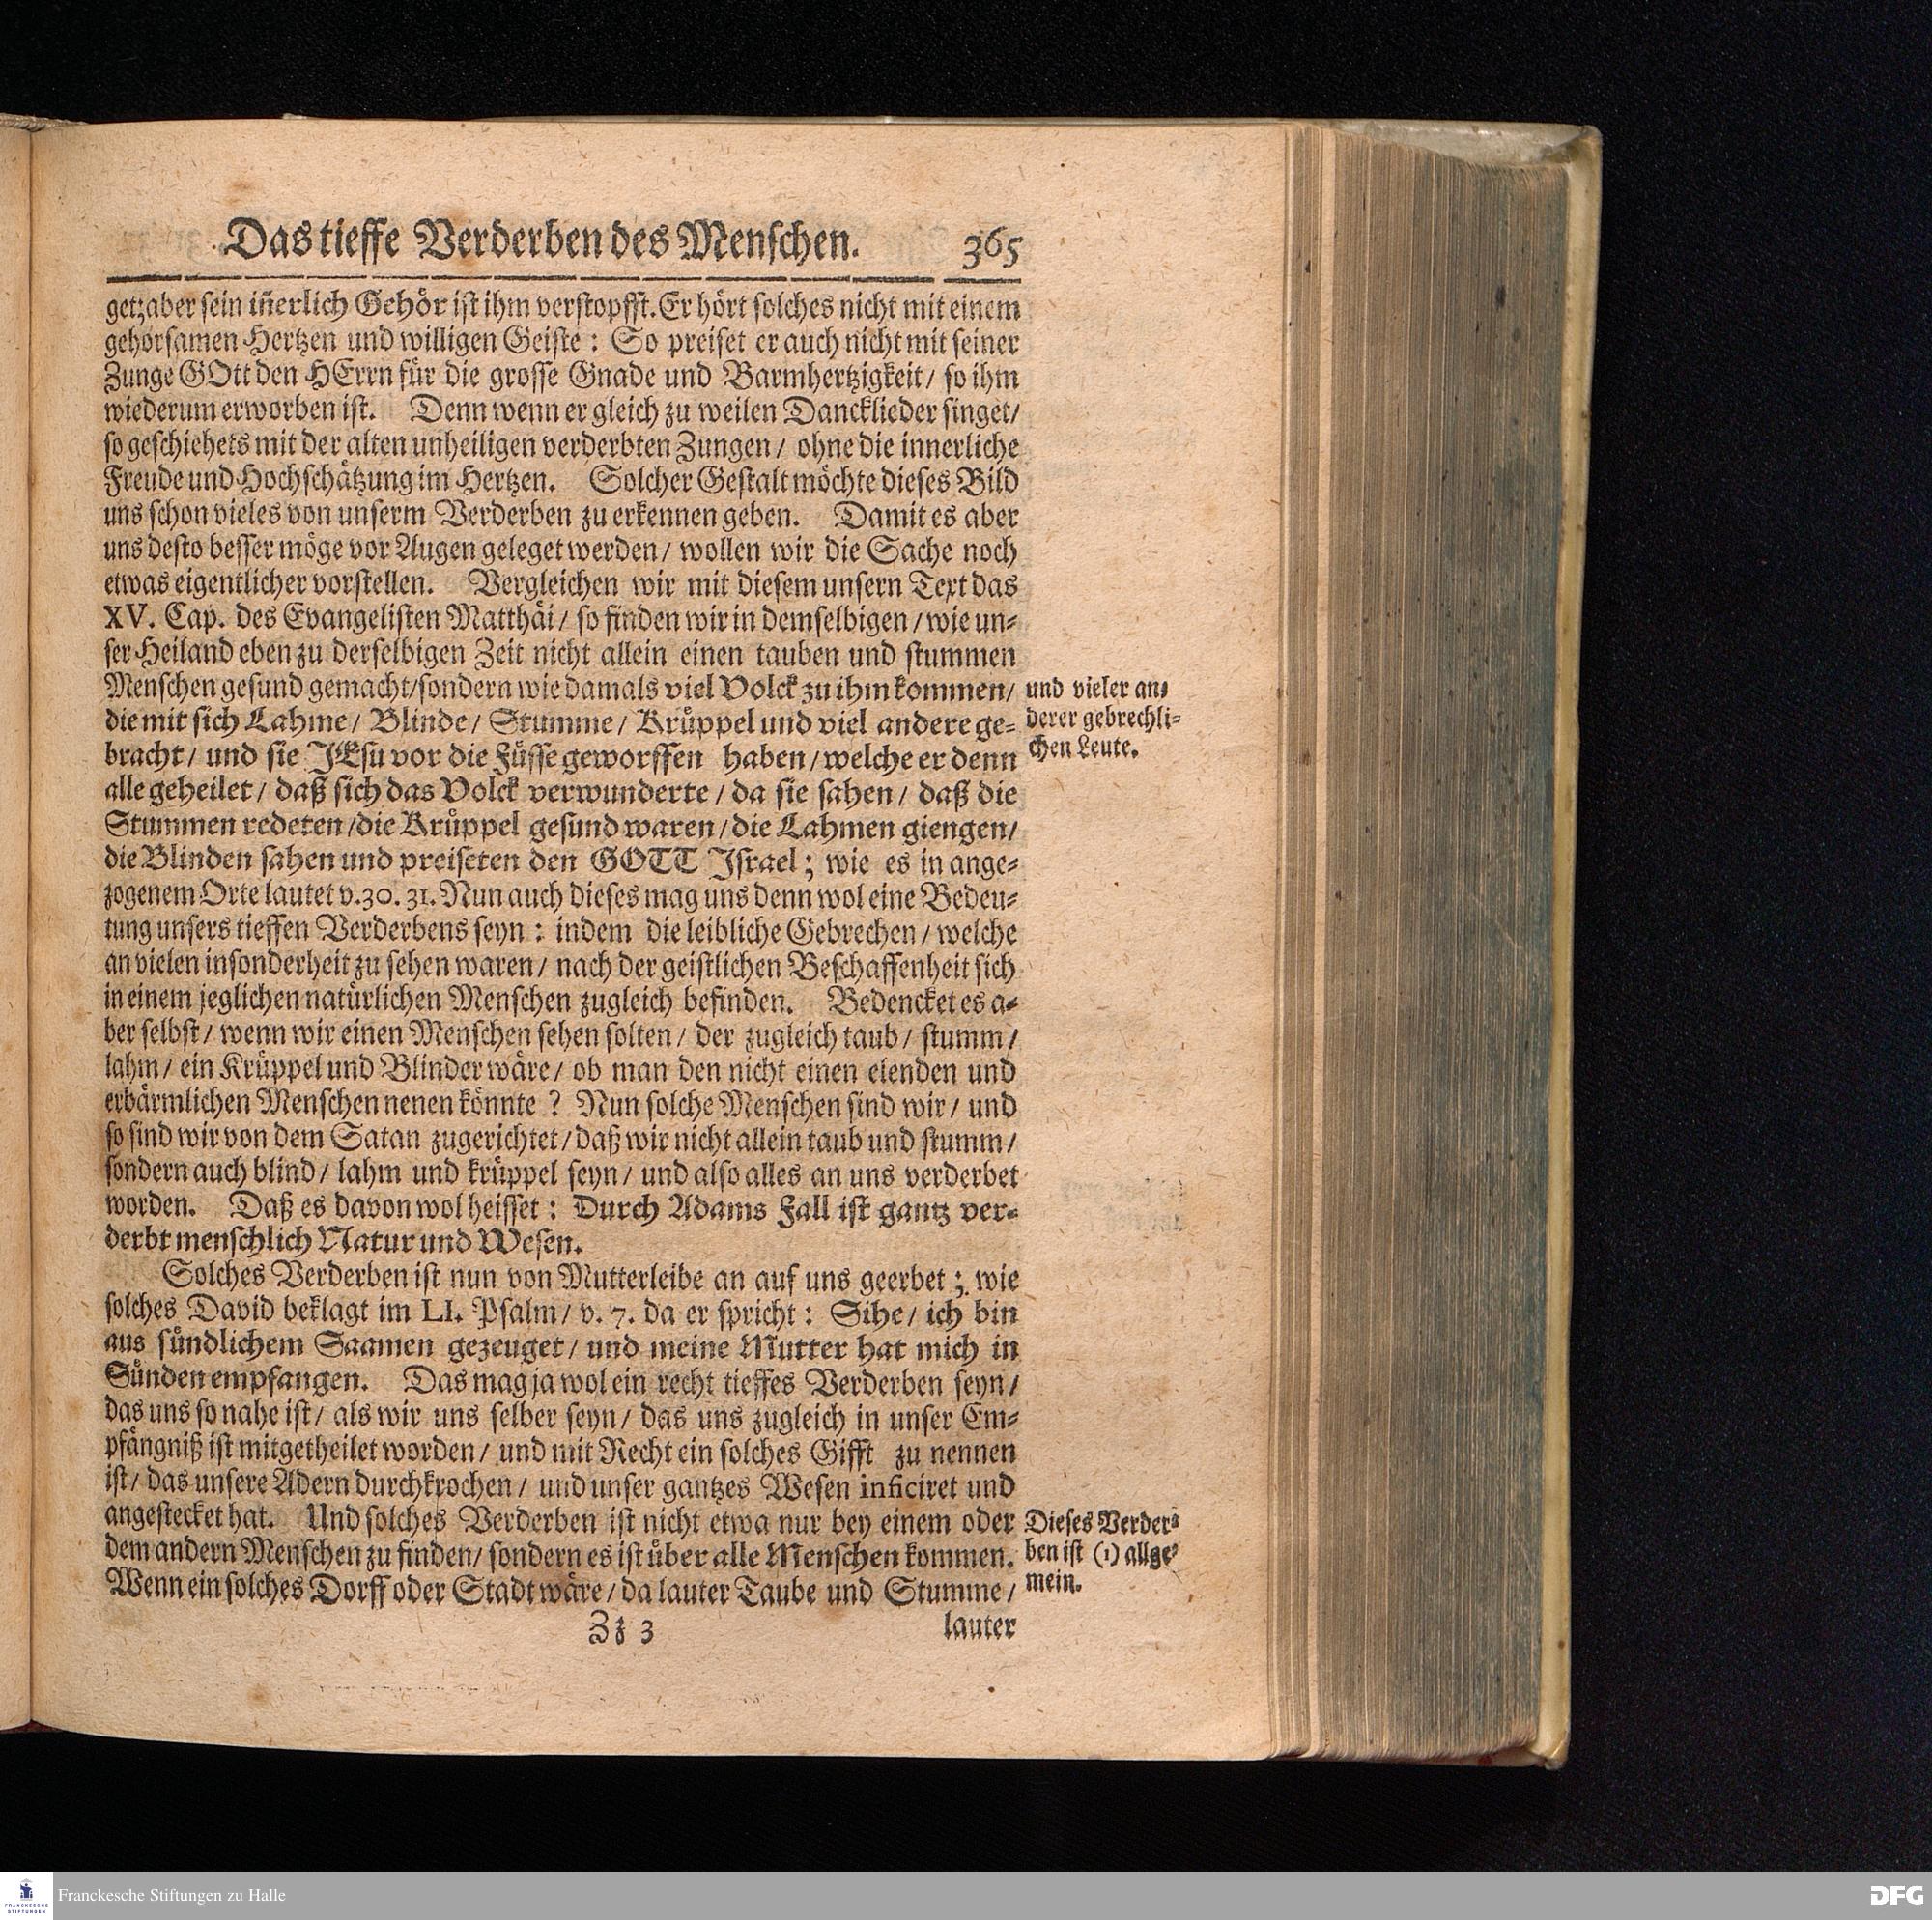 Das tieffe Verderben des Menschen. 365
get; aber sein iñerlich Gehör ist ihm verstopfft. Er hört solches nicht mit einem
gehorsamen Hertzen und willigen Geiste : So preiset er auch nicht mit seiner
Zunge GOtt den HErrn für die grosse Gnade und Barmhertzigkeit / so ihm
wiederum erworben ist. Denn wenn er gleich zu weilen Dancklieder singet/
so geschiehets mit der alten unheiligen verderbten Zungen / ohne die innerliche
Freude und Hochschätzung im Hertzen. Solcher Gestalt möchte dieses Bild
uns schon vieles von unserm Verderben zu erkennen geben. Damit es aber
uns desto besser möge vor Augen geleget werden / wollen wir die Sache noch
etwas eigentlicher vorstellen. Vergleichen wir mit diesem unsern Text das
XV. Cap. des Evangelisten Matthäi / so finden wir in demselbigen / wie un-
ser Heiland eben zu derselbigen Zeit nicht allein einen tauben und stummen
Menschen gesund gemacht/sondern wie damals viel Volck zu ihm kommen/
die mit sich Lahme / Blinde / Stumme / Krüppel und viel andere ge-
bracht / und sie JEsu vor die Füsse geworffen haben / welche er denn
alle geheilet / daß sich das Volck verwunderte / da sie sahen / daß die
Stummen redeten /die Krüppel gesund waren / die Lahmen giengen/
die Blinden sahen und preiseten den GOTT Jsrael ; wie es in ange-
zogenem Orte lautet v. 30. 31. Nun auch dieses mag uns denn wol eine Bedeu-
tung unsers tieffen Verderbens seyn : indem die leibliche Gebrechen / welche
an vielen insonderheit zu sehen waren / nach der geistlichen Beschaffenheit sich
in einem jeglichen natürlichen Menschen zugleich befinden. Bedencket es a-
ber selbst / wenn wir einen Menschen sehen solten / der zugleich taub / stumm /
lahm / ein Krüppel und Blinder wäre / ob man den nicht einen elenden und
erbärmlichen Menschen nenen könnte ? Nun solche Menschen sind wir / und
so sind wir von dem Satan zugerichtet / daß wir nicht allein taub und stumm /
sondern auch blind / lahm und krüppel seyn / und also alles an uns verderbet
worden. Daß es davon wol heisset : Durch Adams Fall ist gantz ver-
derbt menschlich Natur und Wesen.
Solches Verderben ist nun von Mutterleibe an auf uns geerbet ; wie
solches David beklagt im LI. Psalm / v. 7. da er spricht : Sihe / ich bin
aus sündlichem Saamen gezeuget / und meine Mutter hat mich in
Sünden empfangen. Das mag ja wol ein recht tieffes Verderben seyn /
das uns so nahe ist / als wir uns selber seyn / das uns zugleich in unser Em-
pfängniß ist mitgetheilet worden / und mit Recht ein solches Gifft zu nennen
ist / das unsere Adern durchkrochen / und unser gantzes Wesen inficiret und
angestecket hat. Und solches Verderben ist nicht etwa nur bey einem oder
dem andern Menschen zu finden / sondern es ist über alle Menschen kommen.
Wenn ein solches Dorff oder Stadt wäre / da lauter Taube und Stumme /
Zz 3 lauter
und vieler an-
derer gebrechli-
chen Leute.
Dieses Verder-
ben ist (1) allge-
mein.
Franckesche Stiftungen zu Halle
FRANCKESCHE
STIFTUNGEN
DFG